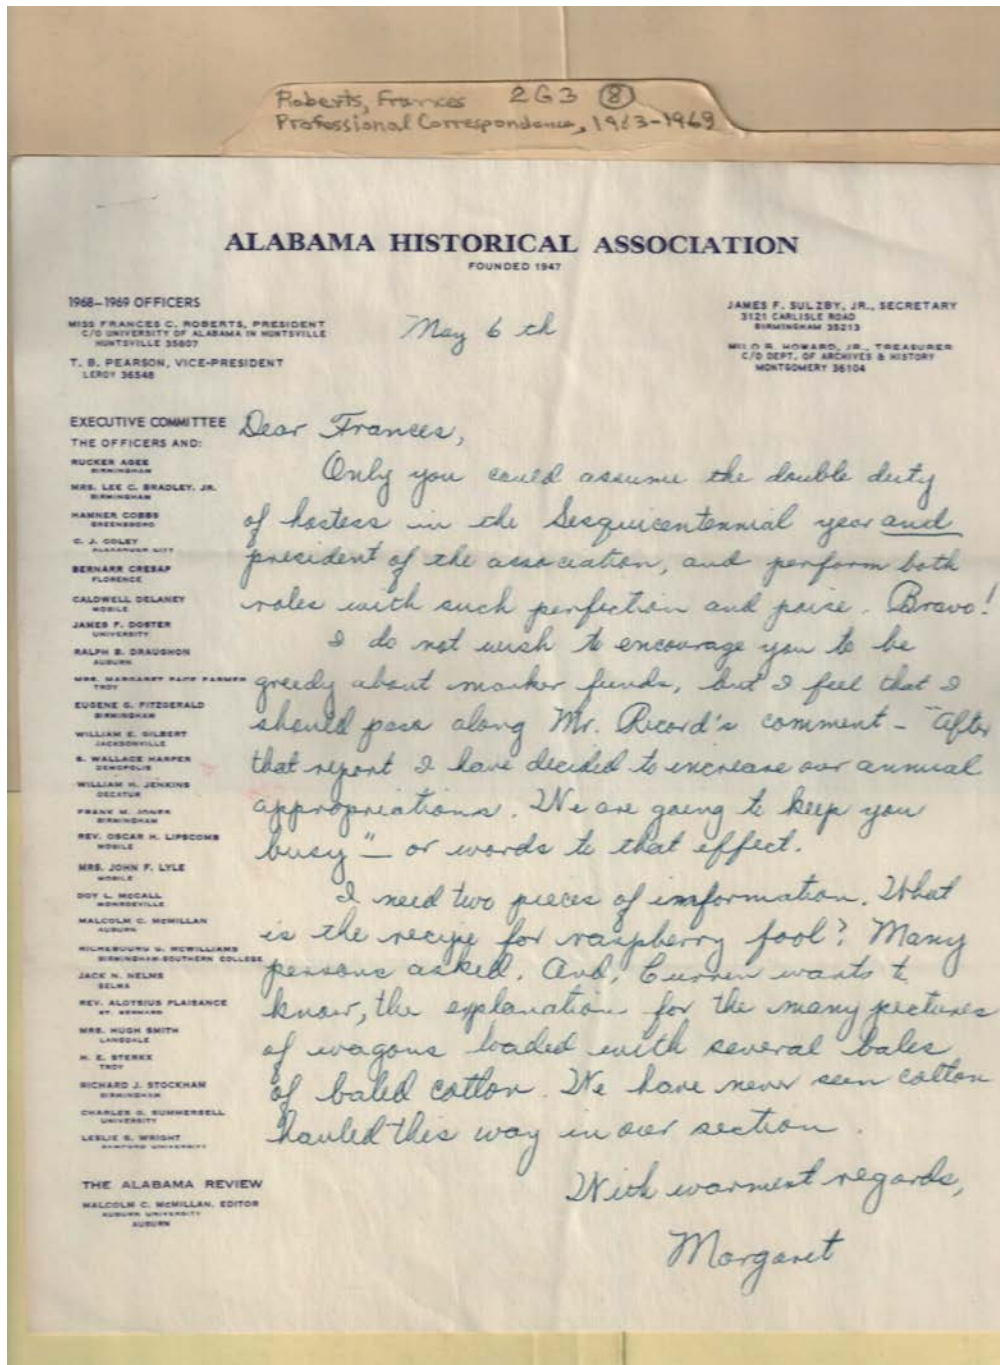 Roberts, Frances 2G3 8
Professional Correspondence, 1963-1969
ALABAMA HISTORICAL ASSOCIATION
FOUNDED 1947
1968-1969 OFFICERS
MISS FRANCES C. ROBERTS, PRESIDENT
C/O UNIVERSITY OF ALABAMA IN HUNTSVILLE
HUNTSVILLE 35807
T. B. PEARSON, VICE-PRESIDENT
LEROY 36548
JAMES F. SULZBY, JR., SECRETARY
3121 CARLISLE ROAD
BIRMINGHAM 35213
MILO B. HOWARD, JR., TREASURER
C/O DEPT. OF ARCHIVES & HISTORY
MONTGOMERY 36104
May 6 th
EXECUTIVE COMMITTEE
THE OFFICERS AND:
RUCKER AGEE
BIRMINGHAM
MRS. LEE C. BRADLEY, JR.
BIRMINGHAM
HAMNER COBBS
GREENSBORO
C. J. COLEY
ALEXANDER CITY
BERNARR CRESAP
FLORENCE
CALDWELL DELANEY
MOBILE
JAMES F. DOSTER
UNIVERSITY
RALPH B. DRAUGHON
AUBURN
MRS. MARGARET PACE FARMER
TROY
EUGENE G. FITZGERALD
BIRMINGHAM
WILLIAM E. GILBERT
JACKSONVILLE
S. WALLACE HARPER
DEMOPOLIS
WILLIAM H. JENKINS
DECATUR
FRANK M. JONES
BIRMINGHAM
REV. OSCAR H. LIPSCOMB
MOBILE
MRS. JOHN F. LYLE
MOBILE
DOY L. McCALL
MONROEVILLE
MALCOLM C. McMILLAN
AUBURN
RICHEBOURG G. McWILLIAMS
BIRMINGHAM-SOUTHERN COLLEGE
JACK N. NELMS
SELMA
REV. ALOYSIUS PLAISANCE
ST. BERNARD
MRS. HUGH SMITH
LANGDALE
H. E. STERKX
TROY
RICHARD J. STOCKHAM
BIRMINGHAM
CHARLES G. SUMMERSELL
UNIVERSITY
LESLIE S. WRIGHT
SAMFORD UNIVERSITY
THE ALABAMA REVIEW
MALCOLM C. McMILLAN, EDITOR
AUBURN UNIVERSITY
AUBURN
Dear Frances,
Only you could assume the double duty
of hostess in the Sesquicentennial year and
president of the association, and perform both
roles with such perfection and poise. Bravo!
I do not wish to encourage you to be
greedy about marker funds, but I feel that I
should pass along Mr. Record's comment - "After
that report I have decided to increase our annual
appropriations. We are going to keep you
busy" - or words to that effect.
I need two pieces of imformation. What
is the recipe for raspberry fool? Many
persons asked. And, Curren wants to
know, the explanation for the many pictures
of wagons loaded with several bales
of baled cotton. We have never seen cotton
hauled this way in our section.
With warmest regards,
Margaret